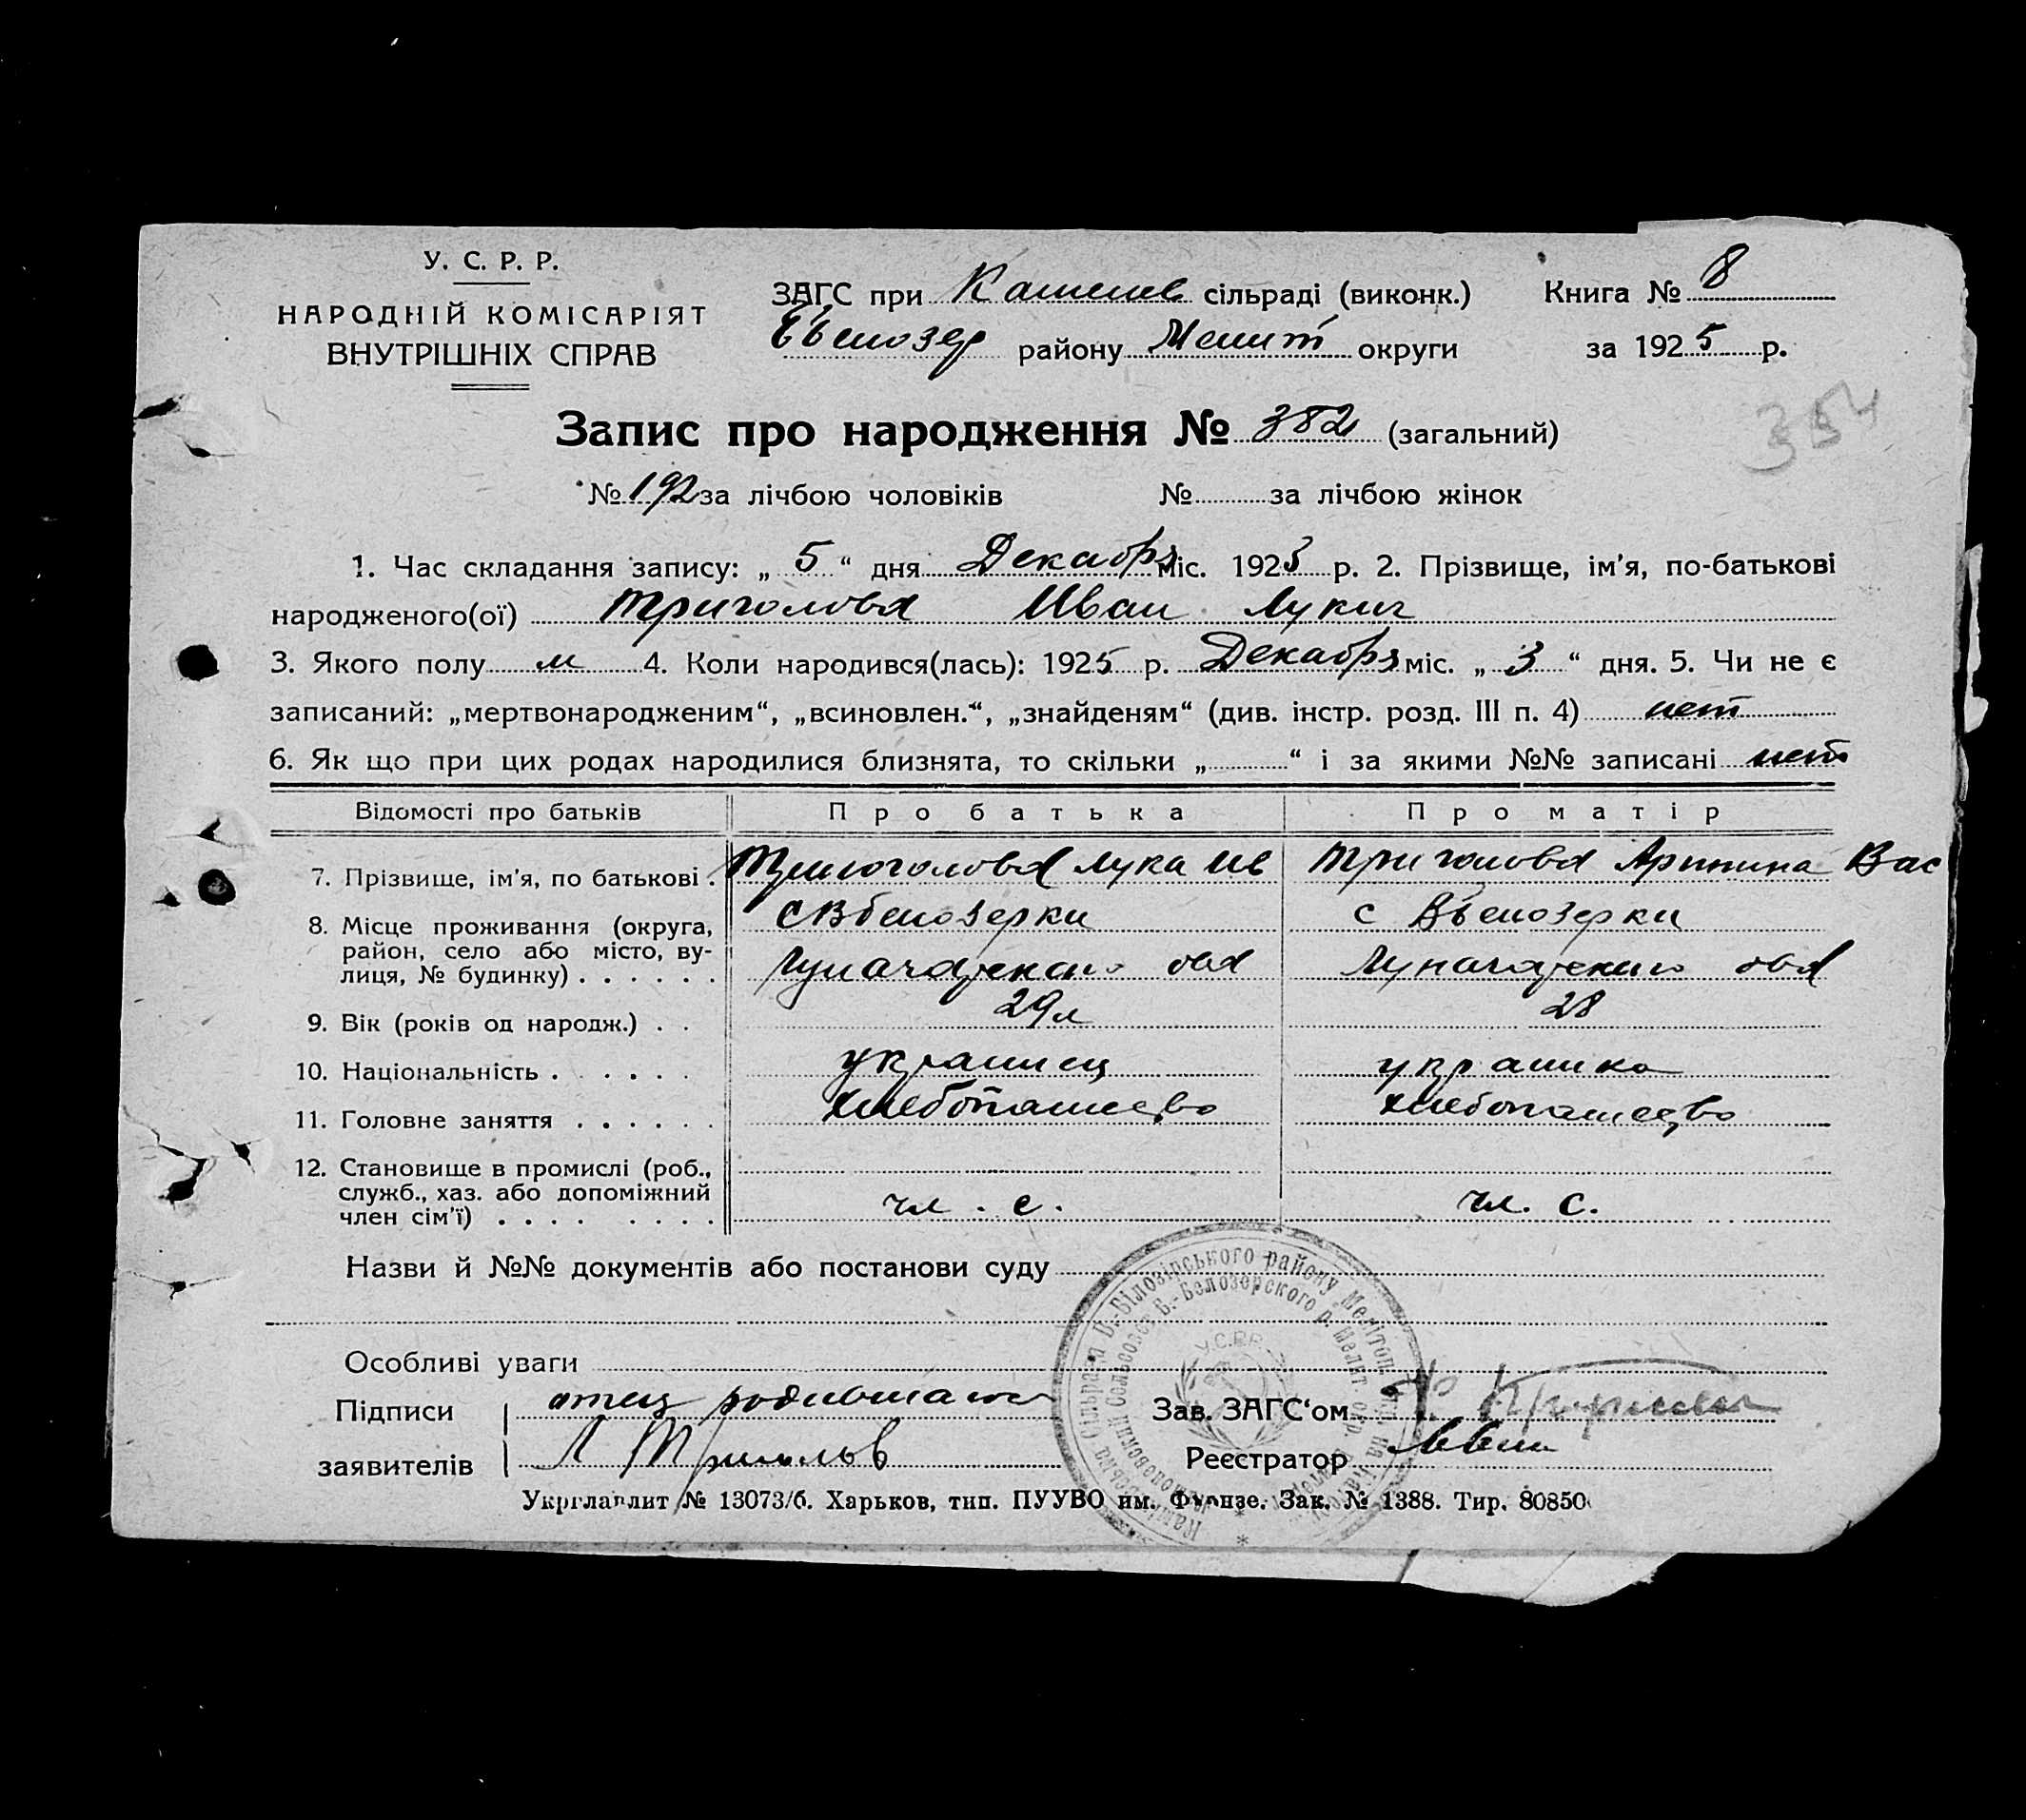 У. С. Р. Р.
НАРОДНІЙ КОМІСАРІЯТ
ВНУТРІШНІХ СПРАВ
ЗАГС при сільраді (виконк.) Книга № 8
району Мелит округи за 1925 р.
354
Запис про народження № 382 (загальний)
№ 192 за лічбою чоловіків № за лічбою жінок
1. Час складання запису: „ 5 “ дня Декабря міс. 1925 р. 2. Прізвище, ім'я, по-батькові
народженого(ої) Триголовa Иван Лукич
3. Якого полу м 4. Коли народився(лась): 1925 р. Декабря міс. „ 3 “ дня. 5. Чи не є
записаний: „мертвонародженим“, „всиновлен.“, „знайденям“ (див. інстр. розд. III п. 4) нет
6. Як що при цих родах народилися близнята, то скільки „ “ і за якими №№ записані нет
Відомості про батьків Про батька Про матір
7. Прізвище, ім'я, по батькові . Лука Ив Триголова Вас
8. Місце проживання (округа, с Вбелозерки с Вбелозерки
район, село або місто, ву-
лиця, № будинку) . . . . . .
9. Вік (років од народж.) . . 29 л 28
10. Національність . . . . . . украинец украинка
11. Головне заняття . . . . . . хлебопашество хлебопашество
12. Становище в промислі (роб.,
служб., хаз. або допоміжний
член сім'ї) . . . . . . . . чл. с. чл. с.
Назви й №№ документів або постанови суду
Особливі уваги
Підписи отец Зав. ЗАГС‘ом
заявителів Л Реєстратор
Укрглавлит № 13073/б. Харьков, тип. ПУУВО им. Фрунзе. Зак. № 1388. Тир. 80850
У.С.Р.Р.